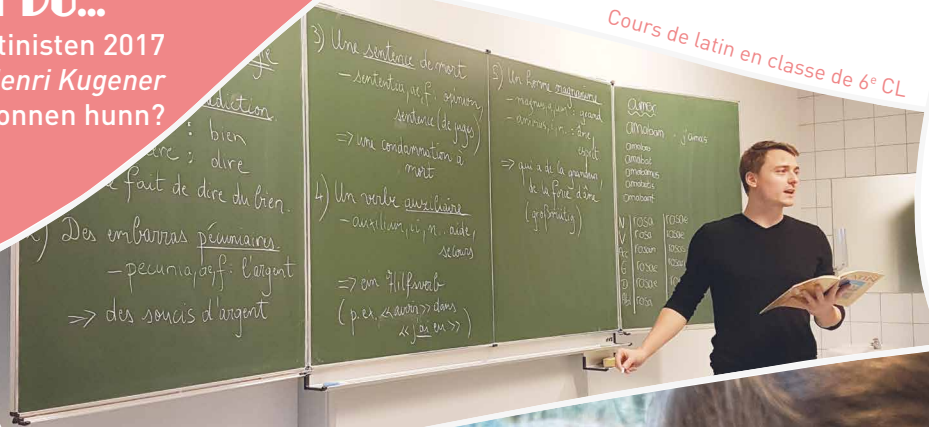 DU...
tinisten 2017
enri Kugener
onnen hunn?
Cours de latin en classe de 6e CL
diction
: bien
: dire
fait de dire du bien.
2) Des embarras pécuniaires.
– pecunia, ae, f : l'argent
=> des soucis d'argent
3) Une sentence de mort
– sententia, ae, f. opinion,
sentence (de juges)
=> une condamnation à
mort
4) Un verbe auxiliaire
– auxilium, ii, n. aide,
secours
=> ein Hilfsverb
(p.ex. «avoir» dans
«j'ai eu»)
5) Un homme magnanime
– magnus, a, um : grand
– animus, i, m. : âme,
esprit
=> qui a de la grandeur,
de la force d'âme
(großmütig)
amer
amabam - j'aimais
amabas
amabat
amabamus
amabatis
amabant
N rosa rosae
V rosa rosae
Ac rosam rosas
G rosae
D rosae
Ab rosa